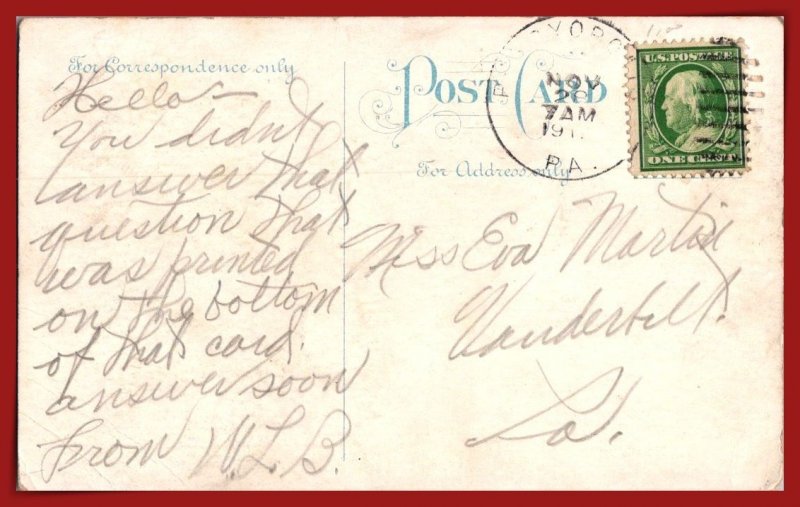 For Correspondence only
Hello—
You didn't
answer that
question that
was printed
on the bottom
of that card.
answer soon
from W.L.B.
POST CARD
For Address only
NOV
7 AM
191
PA.
U.S. POSTAGE
ONE CENT
Miss Eva Martin
Vanderbilt.
Pa.